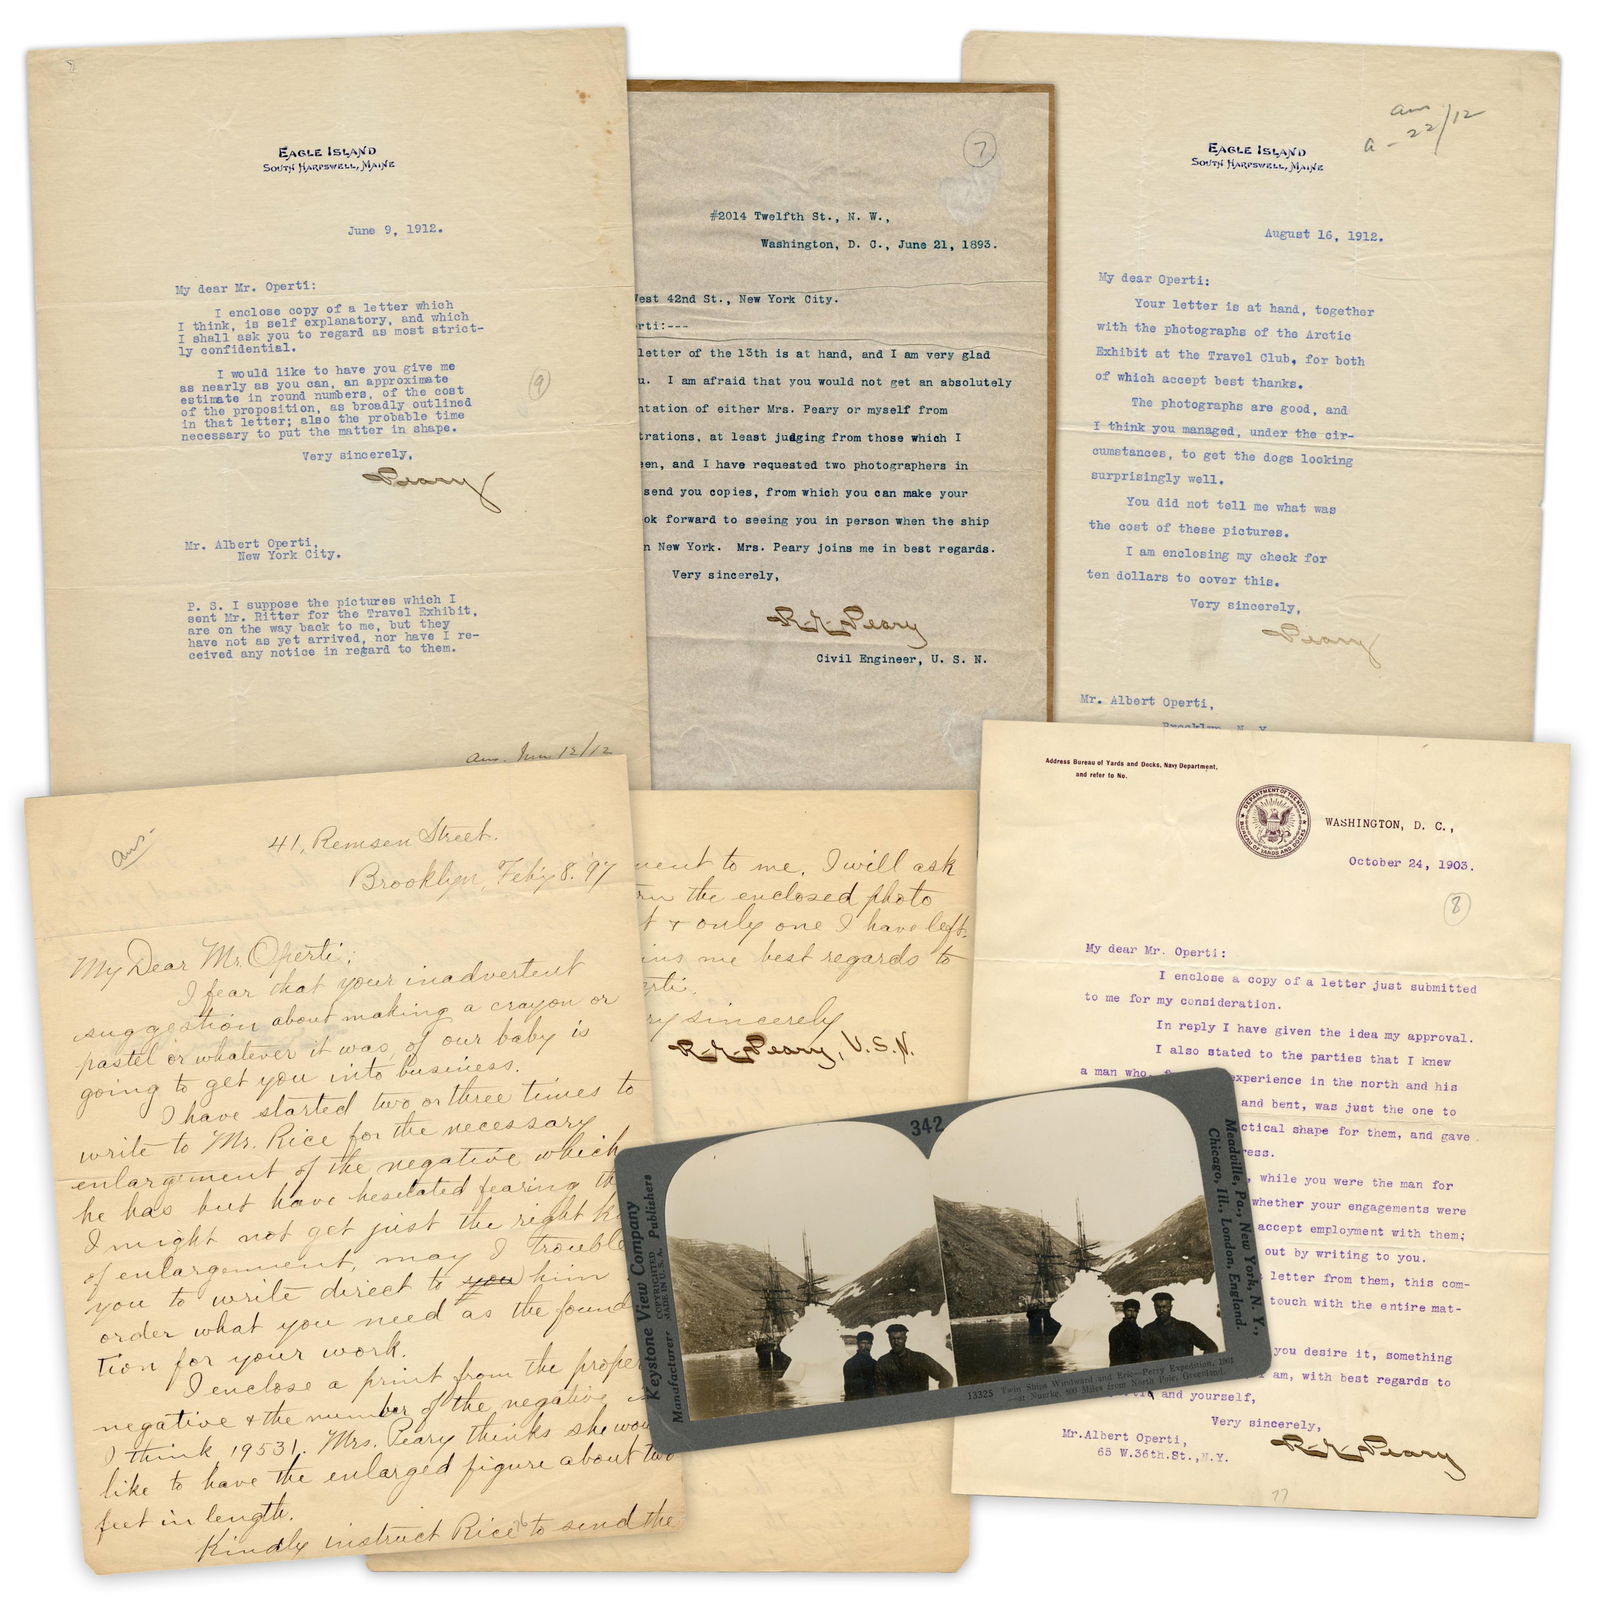 EAGLE ISLAND
SOUTH HARPSWELL, MAINE
June 9, 1912.
My dear Mr. Operti:
I enclose copy of a letter which
I think, is self explanatory, and which
I shall ask you to regard as most strict-
ly confidential.
I would like to have you give me
as nearly as you can, an approximate
estimate in round numbers, of the cost
of the proposition, as broadly outlined
in that letter; also the probable time
necessary to put the matter in shape.
Very sincerely,
Peary
Mr. Albert Operti,
New York City.
P. S. I suppose the pictures which I
sent Mr. Ritter for the Travel Exhibit,
are on the way back to me, but they
have not as yet arrived, nor have I re-
ceived any notice in regard to them.
9
ans. Jun 12/12
7
#2014 Twelfth St., N. W.,
Washington, D. C., June 21, 1893.
West 42nd St., New York City.
rti:---
letter of the 13th is at hand, and I am very glad
u. I am afraid that you would not get an absolutely
ntation of either Mrs. Peary or myself from
trations, at least judging from those which I
en, and I have requested two photographers in
send you copies, from which you can make your
ok forward to seeing you in person when the ship
n New York. Mrs. Peary joins me in best regards.
Very sincerely,
R. E. Peary
Civil Engineer, U. S. N.
ans
a - 22/12
EAGLE ISLAND
SOUTH HARPSWELL, MAINE
August 16, 1912.
My dear Operti:
Your letter is at hand, together
with the photographs of the Arctic
Exhibit at the Travel Club, for both
of which accept best thanks.
The photographs are good, and
I think you managed, under the cir-
cumstances, to get the dogs looking
surprisingly well.
You did not tell me what was
the cost of these pictures.
I am enclosing my check for
ten dollars to cover this.
Very sincerely,
Peary
Mr. Albert Operti,
Brooklyn, N. Y.
ans
41, Remsen Street.
Brooklyn, Feby 8. '97
My Dear Mr. Operti;
I fear that your inadvertent
suggestion about making a crayon or
pastel or whatever it was, of our baby is
going to get you into business.
I have started two or three times to
write to Mr. Rice for the necessary
enlargement of the negative which
he has but have hesitated fearing th
I might not get just the right k
of enlargement, may I trouble
you to write direct to you him
order what you need as the found
tion for your work.
I enclose a print from the proper
negative & the number of the negative is
I think 19531. Mrs. Peary thinks she wou
like to have the enlarged figure about two
feet in length.
Kindly instruct Rice to send the
ment to me. I will ask
rn the enclosed photo
t & only one I have left.
ins me best regards to
erti.
ry sincerely
R. E. Peary, U.S.N.
Address Bureau of Yards and Docks, Navy Department,
and refer to No.
DEPARTMENT OF THE NAVY
BUREAU OF YARDS AND DOCKS
WASHINGTON, D. C.,
October 24, 1903.
8
My dear Mr. Operti:
I enclose a copy of a letter just submitted
to me for my consideration.
In reply I have given the idea my approval.
I also stated to the parties that I knew
a man who, experience in the north and his
and bent, was just the one to
ctical shape for them, and gave
ress.
, while you were the man for
whether your engagements were
accept employment with them;
out by writing to you.
letter from them, this com-
touch with the entire mat-
you desire it, something
I am, with best regards to
and yourself,
Very sincerely,
R. E. Peary
Mr. Albert Operti,
65 W. 36th. St., N.Y.
77
342
Keystone View Company
Manufacturers Publishers
COPYRIGHTED
MADE IN U.S.A.
Meadville, Pa., New York, N. Y.,
Chicago, Ill., London, England.
13325 Twin Ships Windward and Eric—Perry Expedition, 1901
—at Nuerke, 800 Miles from North Pole, Greenland.